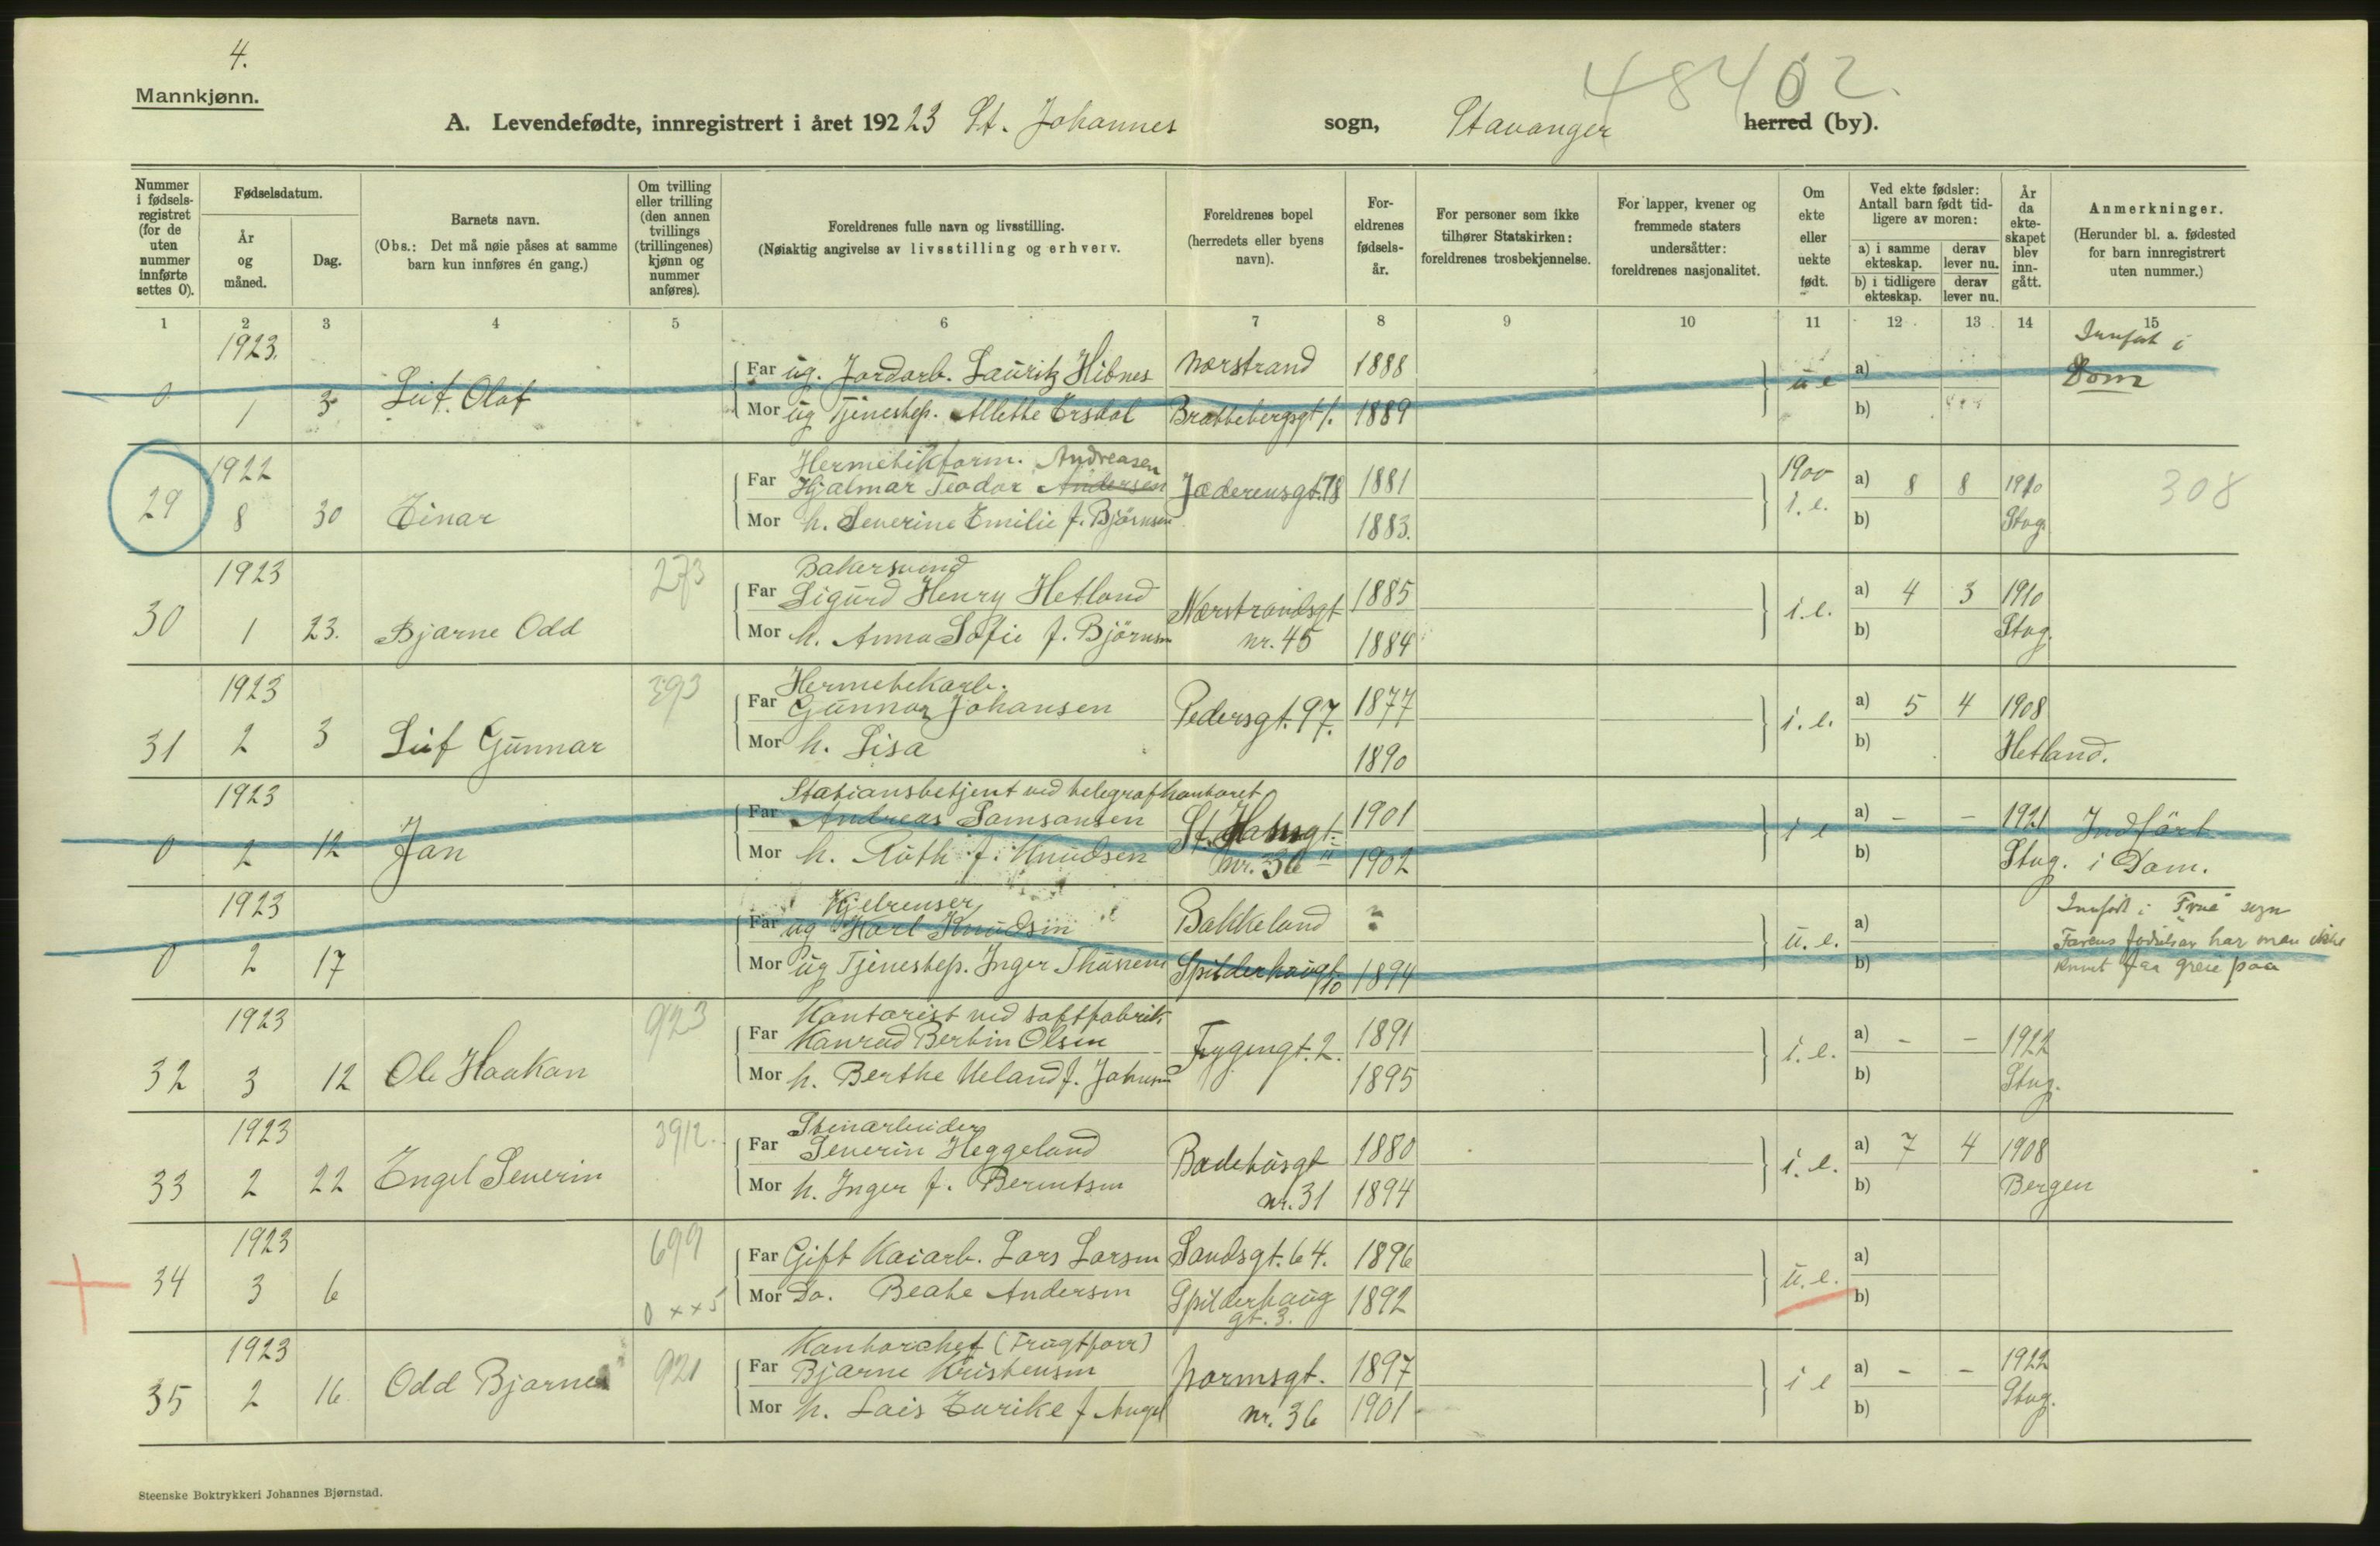 4.
48402.
Mannkjønn.
A. Levendefødte, innregistrert i året 192 23 St. Johannes sogn, Stavanger herred (by).
Nummer i fødselsregistret (for de uten nummer innførte settes 0).
Fødselsdatum.
År og måned.
Dag.
Barnets navn.
(Obs.: Det må nøie påses at samme barn kun innføres én gang.)
Om tvilling eller trilling (den annen tvillings (trillingenes) kjønn og nummer anføres).
Foreldrenes fulle navn og livsstilling.
(Nøiaktig angivelse av livsstilling og erhverv.
Foreldrenes bopel (herredets eller byens navn).
Foreldrenes fødselsår.
For personer som ikke tilhører Statskirken: foreldrenes trosbekjennelse.
For lapper, kvener og fremmede staters undersåtter: foreldrenes nasjonalitet.
Om ekte eller uekte født.
Ved ekte fødsler: Antall barn født tidligere av moren:
a) i samme ekteskap. derav lever nu.
b) i tidligere ekteskap. derav lever nu.
År da ekteskapet blev inngått.
Anmerkninger.
(Herunder bl. a. fødested for barn innregistrert uten nummer.)
1 2 3 4 5 6 7 8 9 10 11 12 13 14 15
1923.
0 1 3 Leif Olaf
Far ug. Jordarb. Lauritz Hibnes Nørstrand 1888
Mor ug Tjenestep. Allette Ersdal Brattebergsgt 1. 1889
u e a) b)
Innført i Dom
1922
29 8 30 Einar
Hermetikform. Andreasen
Far Hjalmar Teodor Andersen Jæderensgt. 78 1881
Mor h. Severine Emilie f. Bjørnsen 1883.
1900
i. e. a) 8 8 b) 1910 Stvg. 308
1923
30 1 23. Bjarne Odd 273
Bakersvend
Far Sigurd Henry Hetland Nørstrandsgt 1885
Mor h. Anna Sofie f. Björnsen nr. 45 1884
i. e. a) 4 3 b) 1910 Stvg.
1923
31 2 3 Leif Gunnar 393
Hermetekarb.
Far Gunnar Johansen Pedersgt. 97. 1877
Mor h. Lisa 1890
i. e. a) 5 4 b) 1908 Hetland.
1923
0 2 12 Jan
Stationsbetjent ved telegrafkontoret
Far Andreas Samsonsen St. Hansgt. 1901
Mor h. Ruth f. Knudsen nr. 36 II 1902
i e a) - - b) 1921 Stvg.
Indført i Dom.
1923
0 2 17
Kjelrenser
Far ug Karl Knudsen Bakkeland ?
Mor ug Tjenestep. Inger Spilderhaugt. 10 1894
u. e. a) b)
Innført i "Frue" sogn
Farens fødselsår har man ikke
kunnet faa greie paa
1923
32 3 12 Ole Haakon 923
Kontorist ved saftfabrik
Far Konrad Bertin Olsen Frygengt. 2. 1891
Mor h. Berthe Ueland f. Johnsen 1895
i. e. a) - - b) 1922 Stvg.
1923
33 2 22 Engel Severin 3912.
Stenarbeider
Far Severin Heggeland Badehusgt 1880
Mor h. Inger f. Berentsen nr. 31 1894
i. e. a) 7 4 b) 1908 Bergen
1923
34 3 6 699 0 x x 5
Far Gift Kaiarb. Lars Larsen Sandsgt. 64. 1896
Mor Do. Beate Andersen Spilderhaug gt. 3. 1892
u. e. a) b)
1923
35 2 16 Odd Bjarne 921
Kontorchef (Frugtforr)
Far Bjarne Kristensen Normsgt. 1897
Mor h. Lais Eurike f nr. 36 1901
i e a) - - b) 1922 Stvg.
Steenske Boktrykkeri Johannes Bjørnstad.